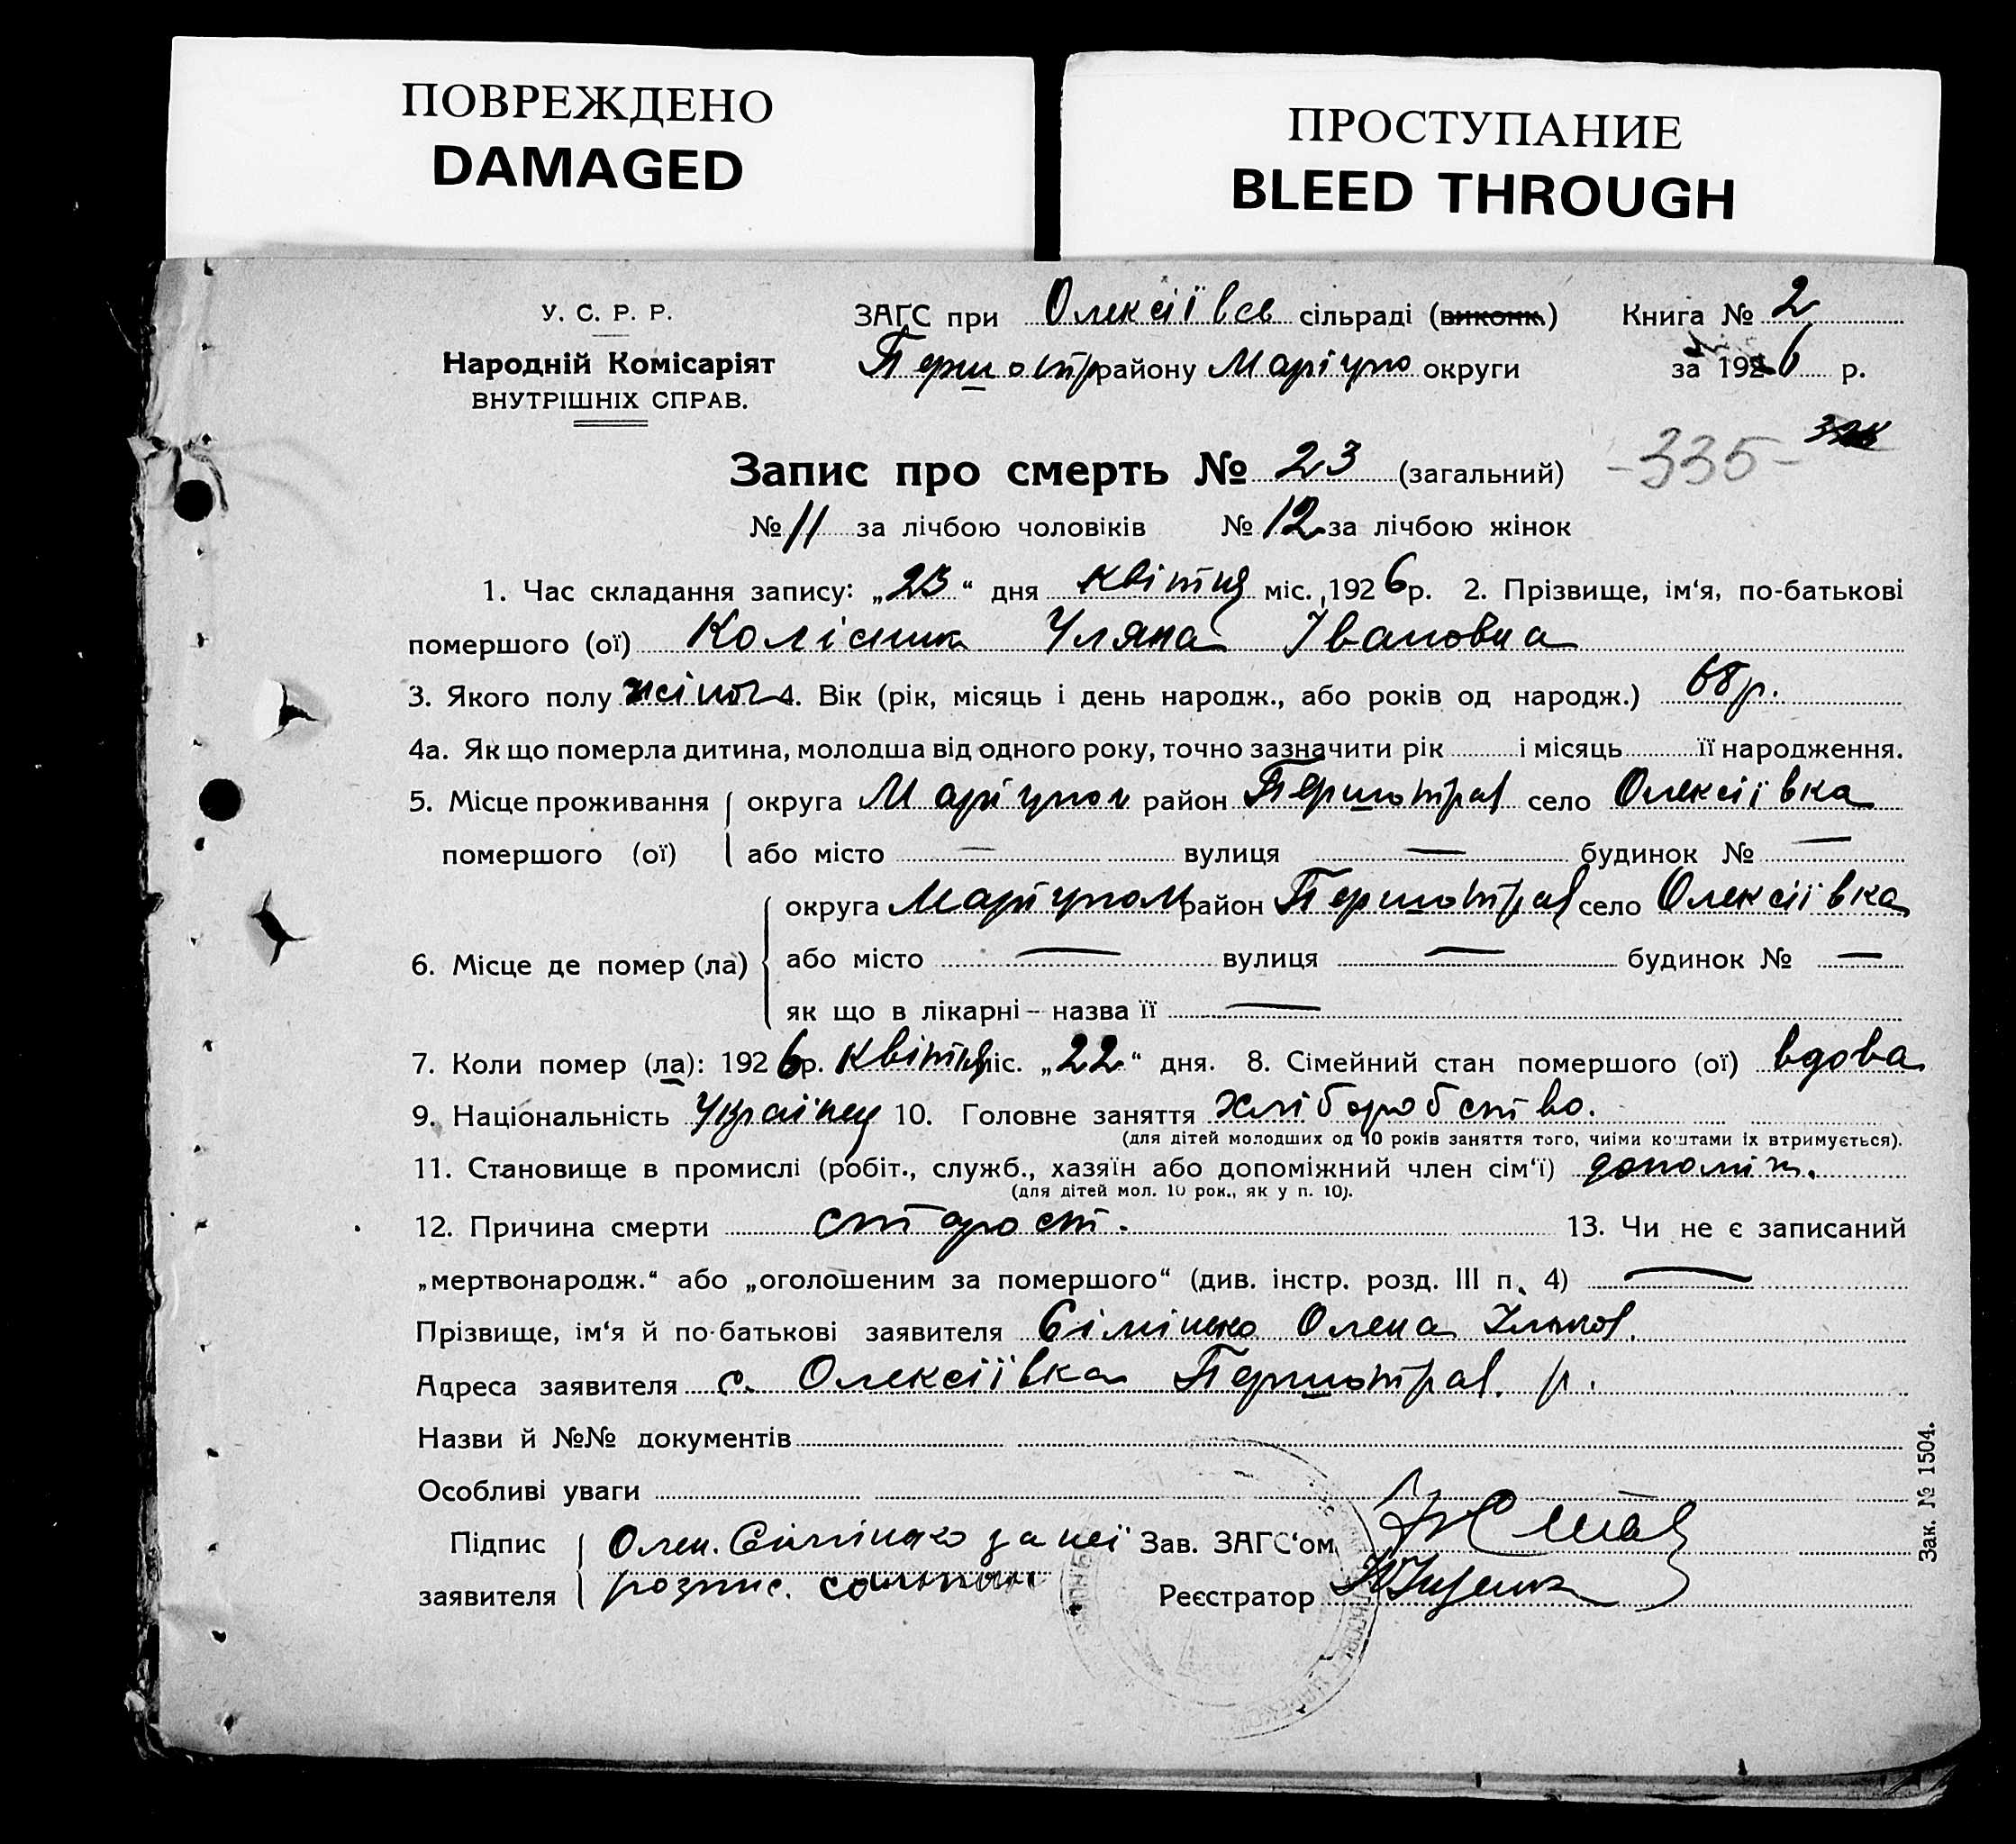 ПОВРЕЖДЕНО
DAMAGED
ПРОСТУПАНИЕ
BLEED THROUGH
У. С. Р. Р.
Народній Комісаріят
ВНУТРІШНІХ СПРАВ.
ЗАГС при Олексіївсв сільраді (виконк.) Книга № 2
Першотр району Маріупо округи за 1926 р.
-335-
Запис про смерть № 23 (загальний)
№ 11 за лічбою чоловіків № 12 за лічбою жінок
1. Час складання запису: „23“ дня квітня міс. 1926 р. 2. Прізвище, ім‘я, по-батькові
помершого (ої) Колісник Уляна Івановна
3. Якого полу жіноч 4. Вік (рік, місяць і день народж., або років од народж.) 68 р.
4а. Як що померла дитина, молодша від одного року, точно зазначити рік і місяць її народження.
5. Місце проживання округа Маріупол район Першотрав село Олексіївка
помершого (ої) або місто — вулиця — будинок № —
округа Маріупол район Першотрав село Олексіївка
6. Місце де помер (ла) або місто — вулиця — будинок № —
як що в лікарні – назва її —
7. Коли помер (ла): 1926 р. квітня міс. „22“ дня. 8. Сімейний стан помершого (ої) вдова
9. Національність 10. Головне заняття хліборобство.
(для дітей молодших од 10 років заняття того, чиїми коштами їх втримується).
11. Становище в промислі (робіт., служб., хазяїн або допоміжний член сім‘ї) допоміж.
(для дітей мол. 10 рок., як у п. 10).
12. Причина смерти старост. 13. Чи не є записаний
„мертвонародж.“ або „оголошеним за помершого“ (див. інстр. розд. III п. 4) —
Прізвище, ім‘я й по-батькові заявителя Олена
Адреса заявителя с. Олексіївка Першотрав. р.
Назви й №№ документів
Особливі уваги
Підпис Олен. за неї Зав. ЗАГС‘ом
заявителя розпис. Реєстратор
Зак. № 1504.